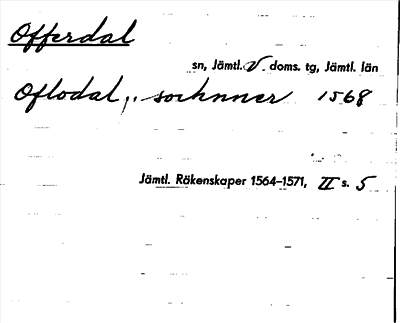 Offerdal
sn, Jämtl. V. doms. tg, Jämtl. län
Oflodal,, sochnner 1568
Jämtl. Räkenskaper 1564–1571, II s. 5